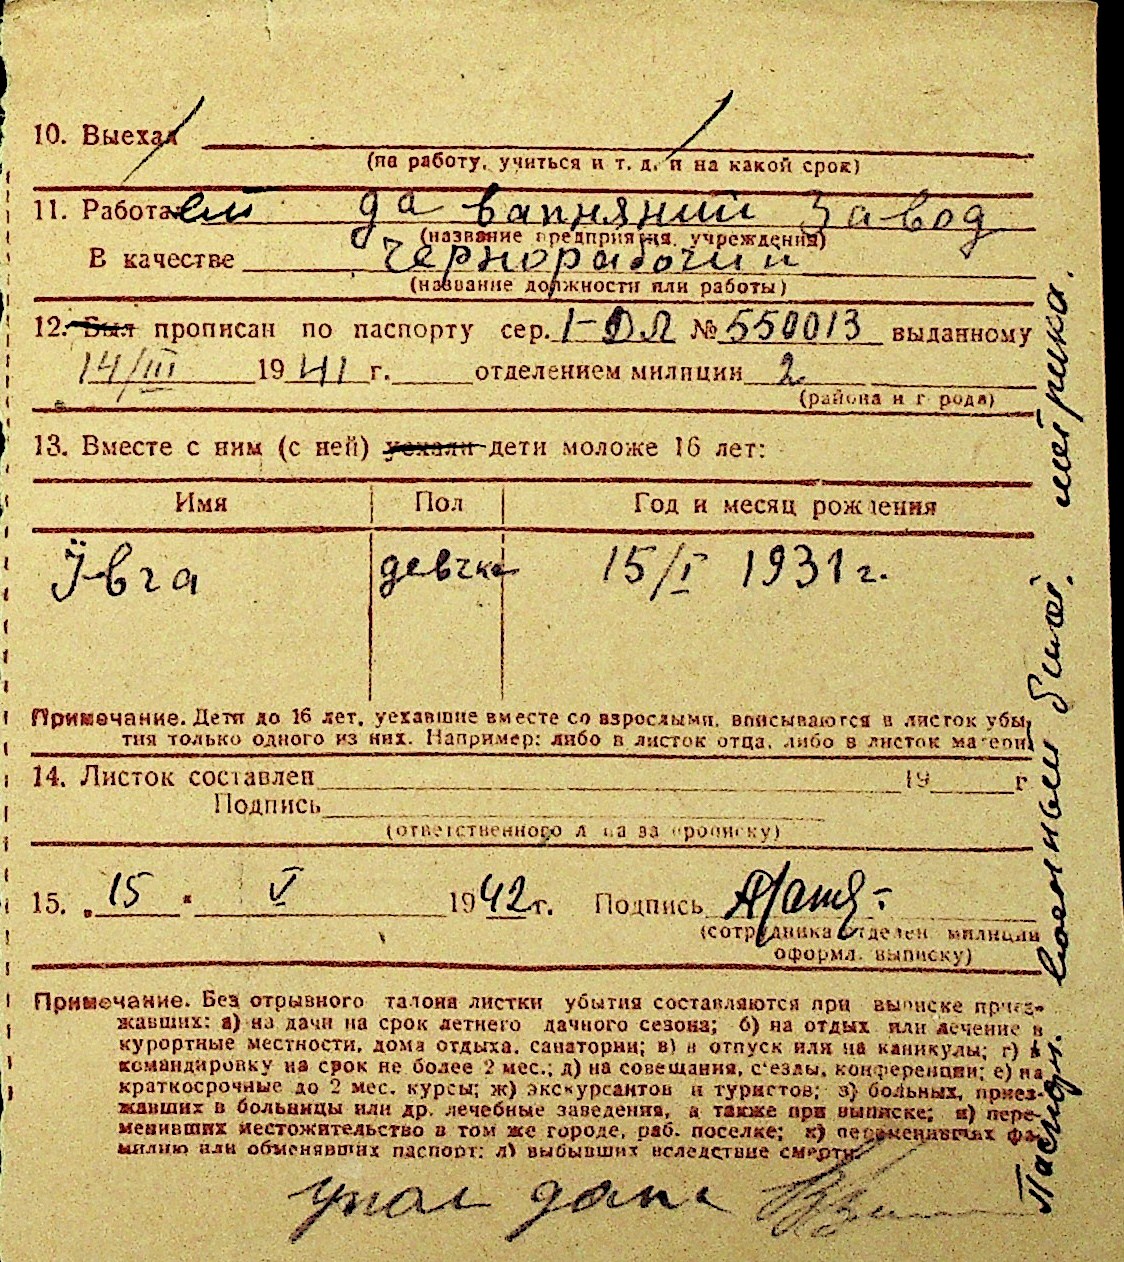 10. Выехал
(на работу, учиться и т. д. и на какой срок)
11. Работает да вапняний завод
(название предприятия, учреждения)
В качестве чернорабочий
(название должности или работы)
12. Был прописан по паспорту сер. I-ДЛ № 550013 выданному
14/III 1941 г. отделением милиции 2
(района и города)
13. Вместе с ним (с ней) уехали дети моложе 16 лет:
Имя Пол Год и месяц рождения
девчка 15/I 1931 г.
Примечание. Дети до 16 лет, уехавшие вместе со взрослыми, вписываются в листок убы-
тия только одного из них. Например: либо в листок отца, либо в листок матери
14. Листок составлен 19 г
Подпись
(ответственного лица за прописку)
15. „15" V 1942 г. Подпись
(сотрудника отделен. милиции
оформл. выписку)
Примечание. Без отрывного талона листки убытия составляются при выписке приез-
жавших: а) на дачи на срок летнего дачного сезона; б) на отдых или лечение в
курортные местности, дома отдыха, санатории; в) в отпуск или на каникулы; г) в
командировку на срок не более 2 мес.; д) на совещания, съезды, конференции; е) на
краткосрочные до 2 мес. курсы; ж) экскурсантов и туристов; з) больных, приез-
жавших в больницы или др. лечебные заведения, а также при выписке; и) пере-
менивших местожительство в том же городе, раб. поселке; к) переменивших фа-
милию или обменявших паспорт; л) выбывших вследствие смерти.
Паспорт. военный билет. метрика.